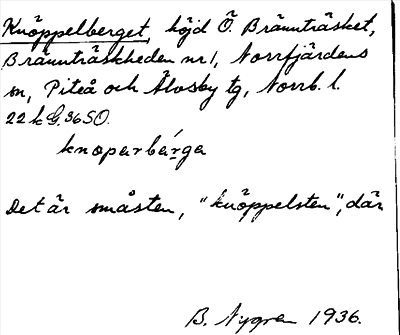 Knöppelberget, höjd Ö. Brännträsket,
Brännträskheden nr 1, Norrfjärdens
sn, Piteå och Älvsby tg, Norrb. l.
22 k G. 36 SO.
knopərbǽrgə
Det är småsten, "knöppelsten", där
B. Nygren 1936.